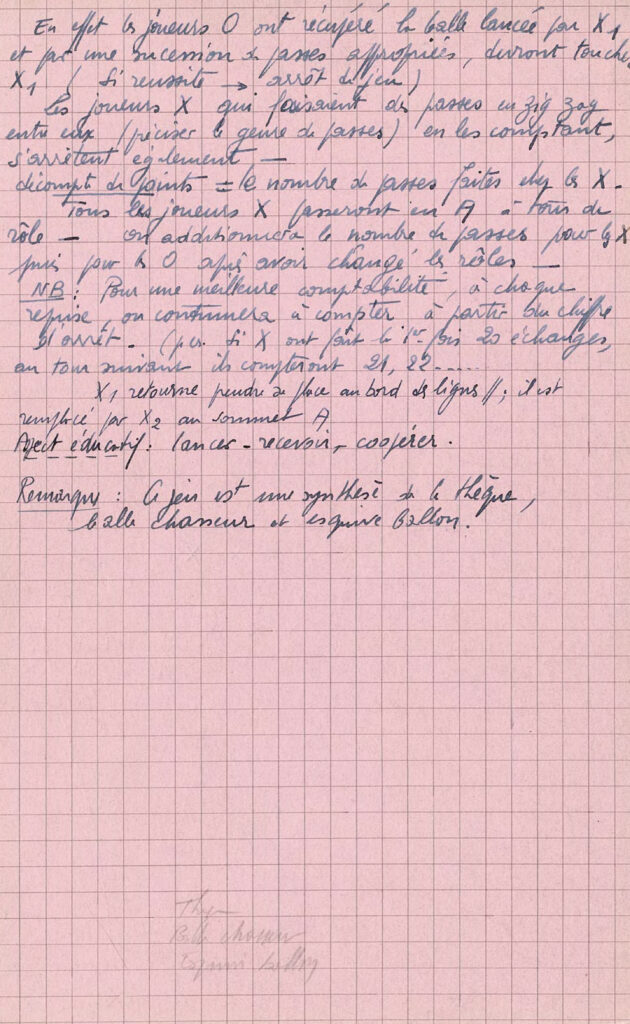 En effet les joueurs O ont récupéré la balle lancée par X1
et par une sucession de passes appropriées, devront touche
X1 ( Si réussite → arrêt du jeu )
Les joueurs X qui faisaient des passes en zig zag
entre eux (préciser le genre de passes) en les comptant,
s'arrêtent également —
décompte de points = le nombre de passes faites chez les X.
Tous les joueurs X passeront en A à tour de
rôle — on additionnera le nombre de passes pour les X
puis pour les O après avoir changé les rôles —
NB : Pour une meilleure comptabilité, à chaque
reprise, on continuera à compter à partir du chiffre
d'arrêt. (p.ex. Si X ont fait la 1re fois 20 échanges,
au tour suivant ils compteront 21, 22.....
X1 retourne prendre sa place au bord des lignes // ; il est
remplacé par X2 au sommet A
Aspect éducatif : lancer - recevoir - coopérer.
Remarque : Ce jeu est une synthèse de la thèque,
balle chasseur et esquive ballon.
Balle chasseur
Esquive ballon